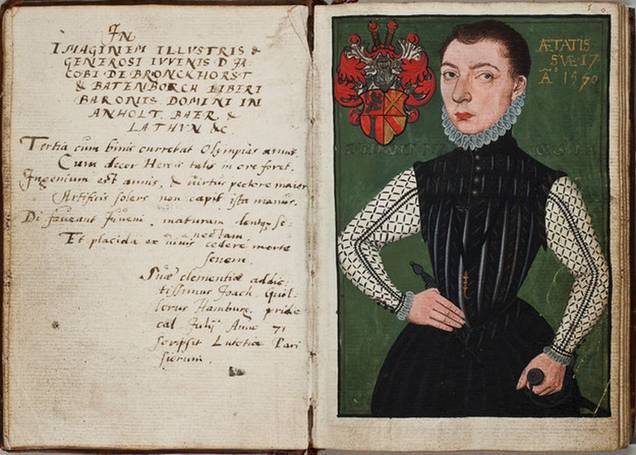 IN
IMAGINEM ILLUSTRIS &
GENEROSI IVVENIS D JA
COBI DE BRONCKHORST
& BATENBORCH LIBERI
BARONIS DOMINI IN
ANHOLT. BAER. &
LATHVN &c
Tertia cum binis currebat Olympias annis
Cum decor Herois talis in ore foret.
Ingenium est annis, & virtus pectore maior
Artificis solers non capit ista manus.
Di faveant Iuveni, maturam dentque se:
nectam
Et placida ex vivis cedere morte
senem.
Suae clementiae addic:
tissimus Joach.
Hamburg. pridie
cal Julij Anno 71
scripsit Lutetiae Pari
siorum
ÆTATIS
SVE 17
Aº 1570